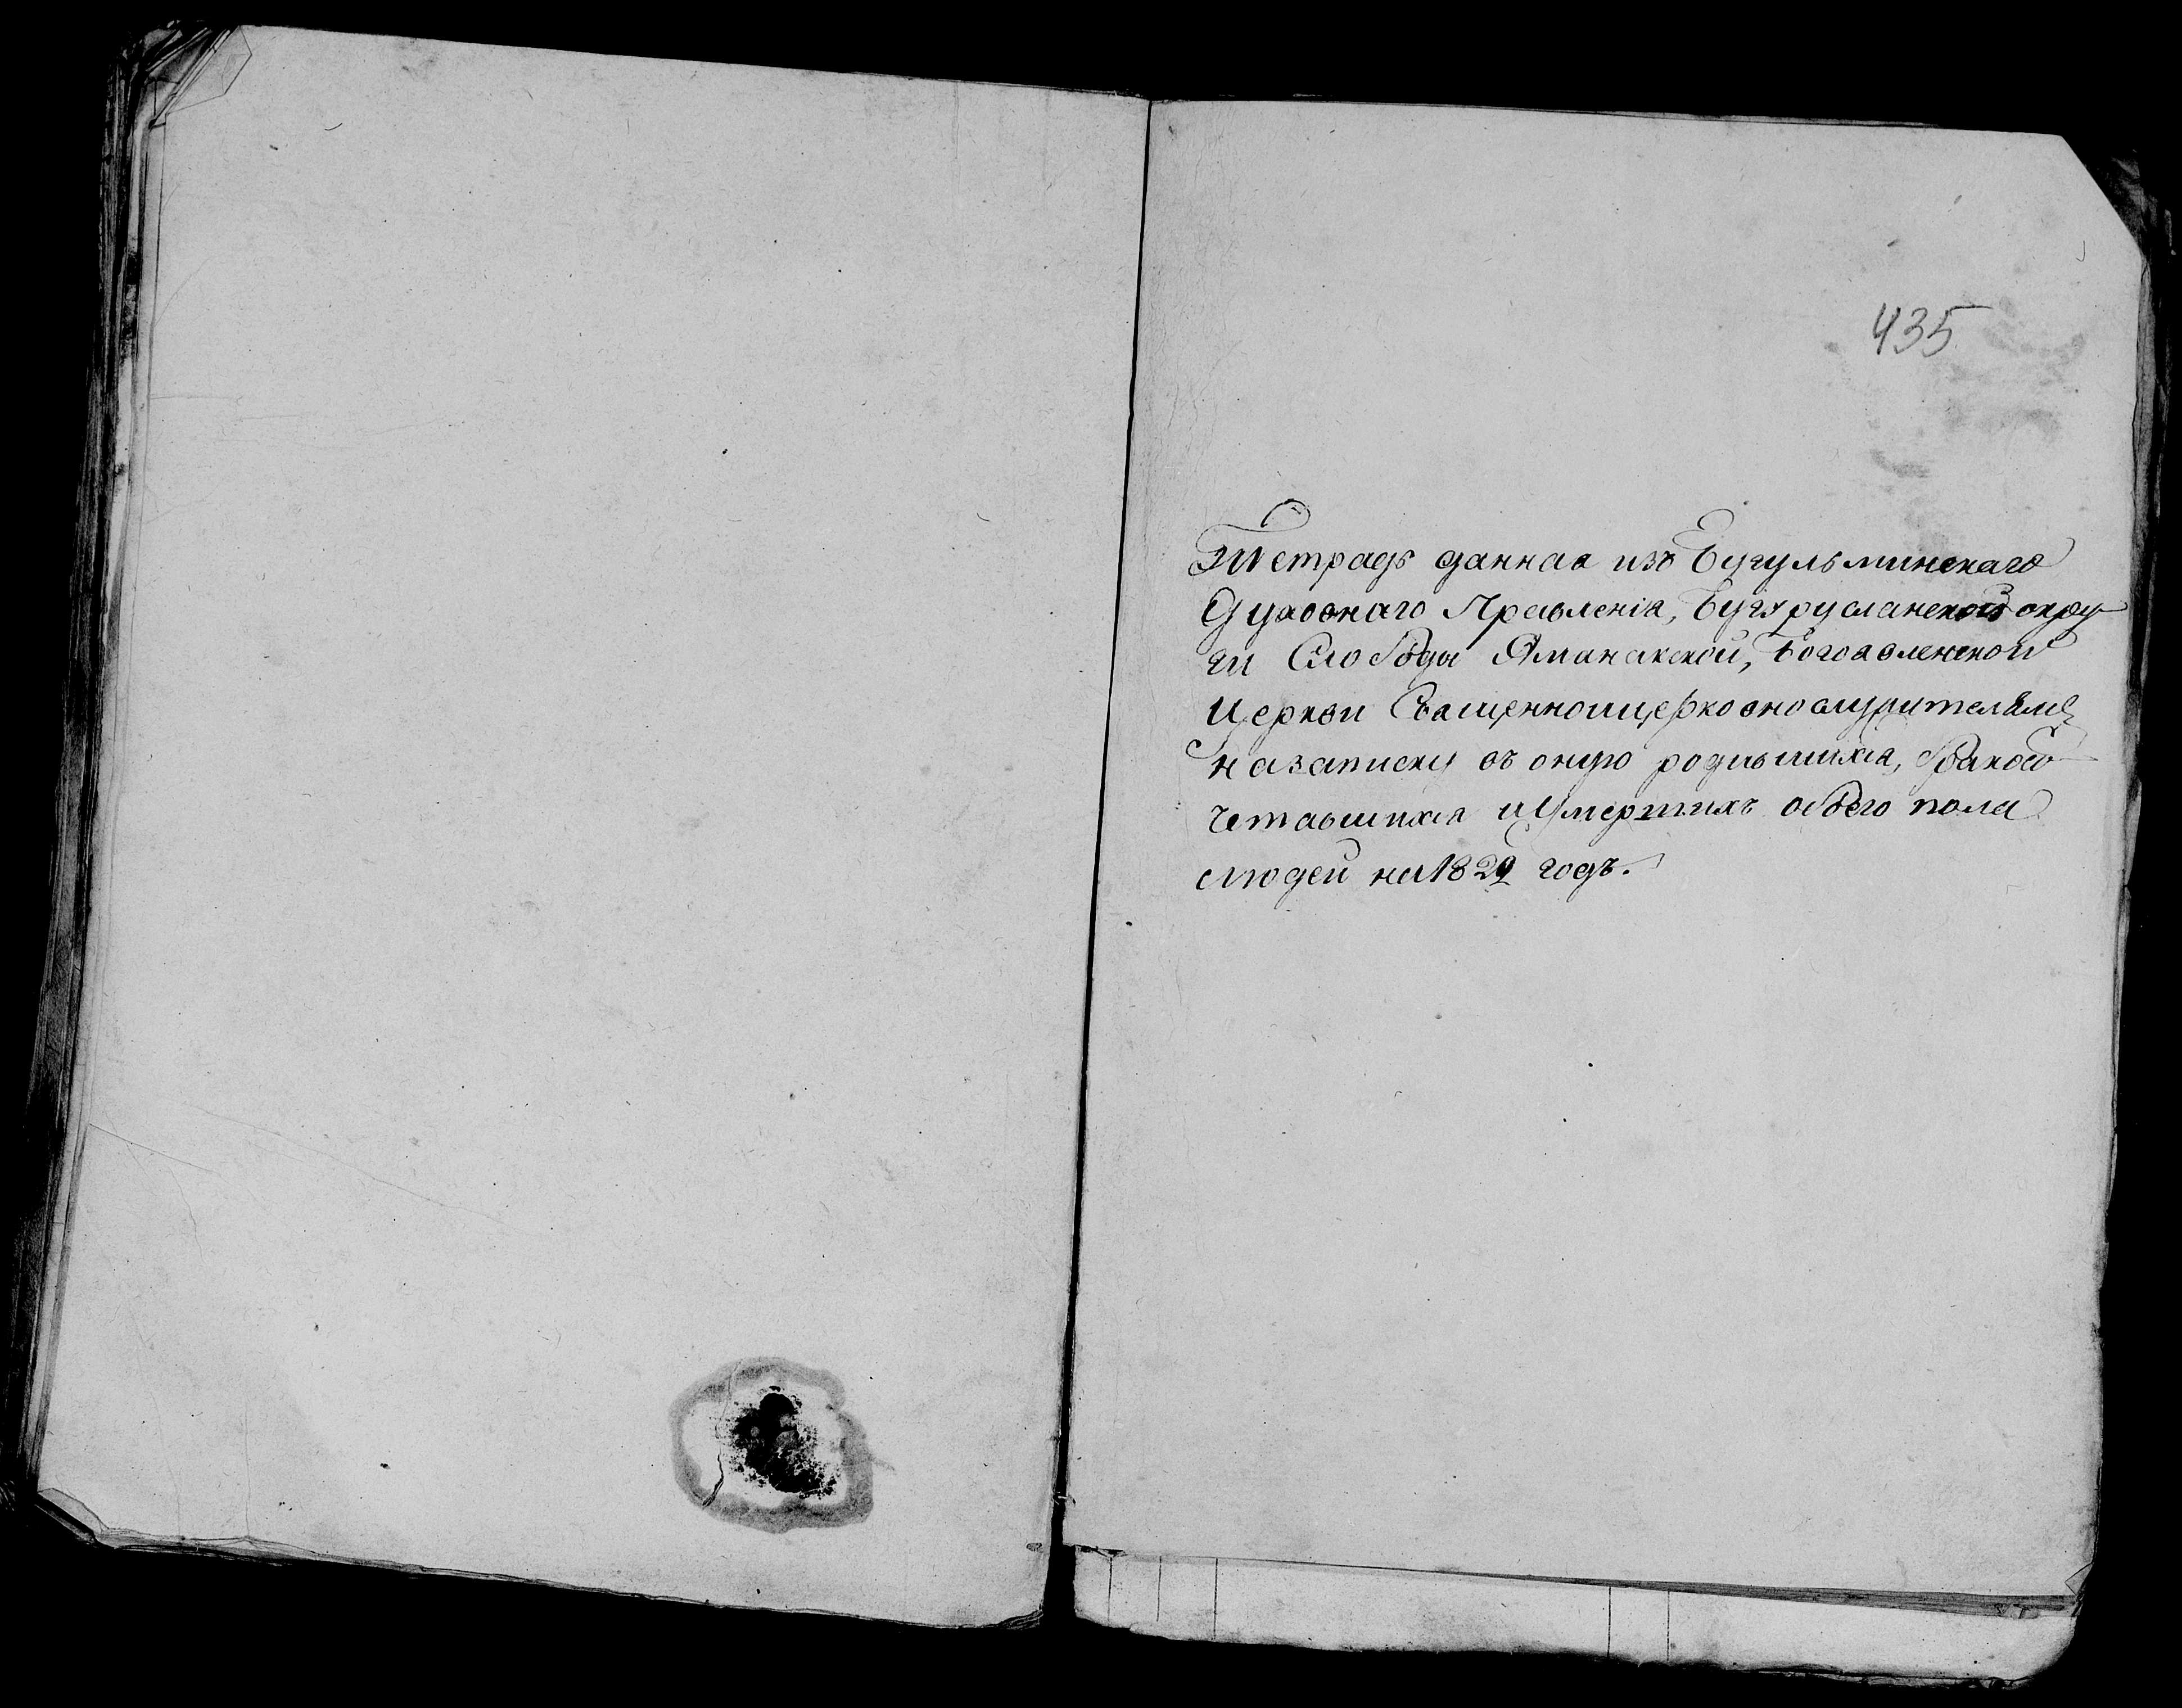 435
Тетрадь данная изъ Бугульминскаго
Духовнаго Правленія, Бугурусланской окру-
ги Слободы Аманакской, Богоявленской
Церкви Священноицерковнослужителямъ
назаписку въ оную родившихся, бракосо-
четавшихся иУмершихъ обоего пола
людей на 1829 годъ.